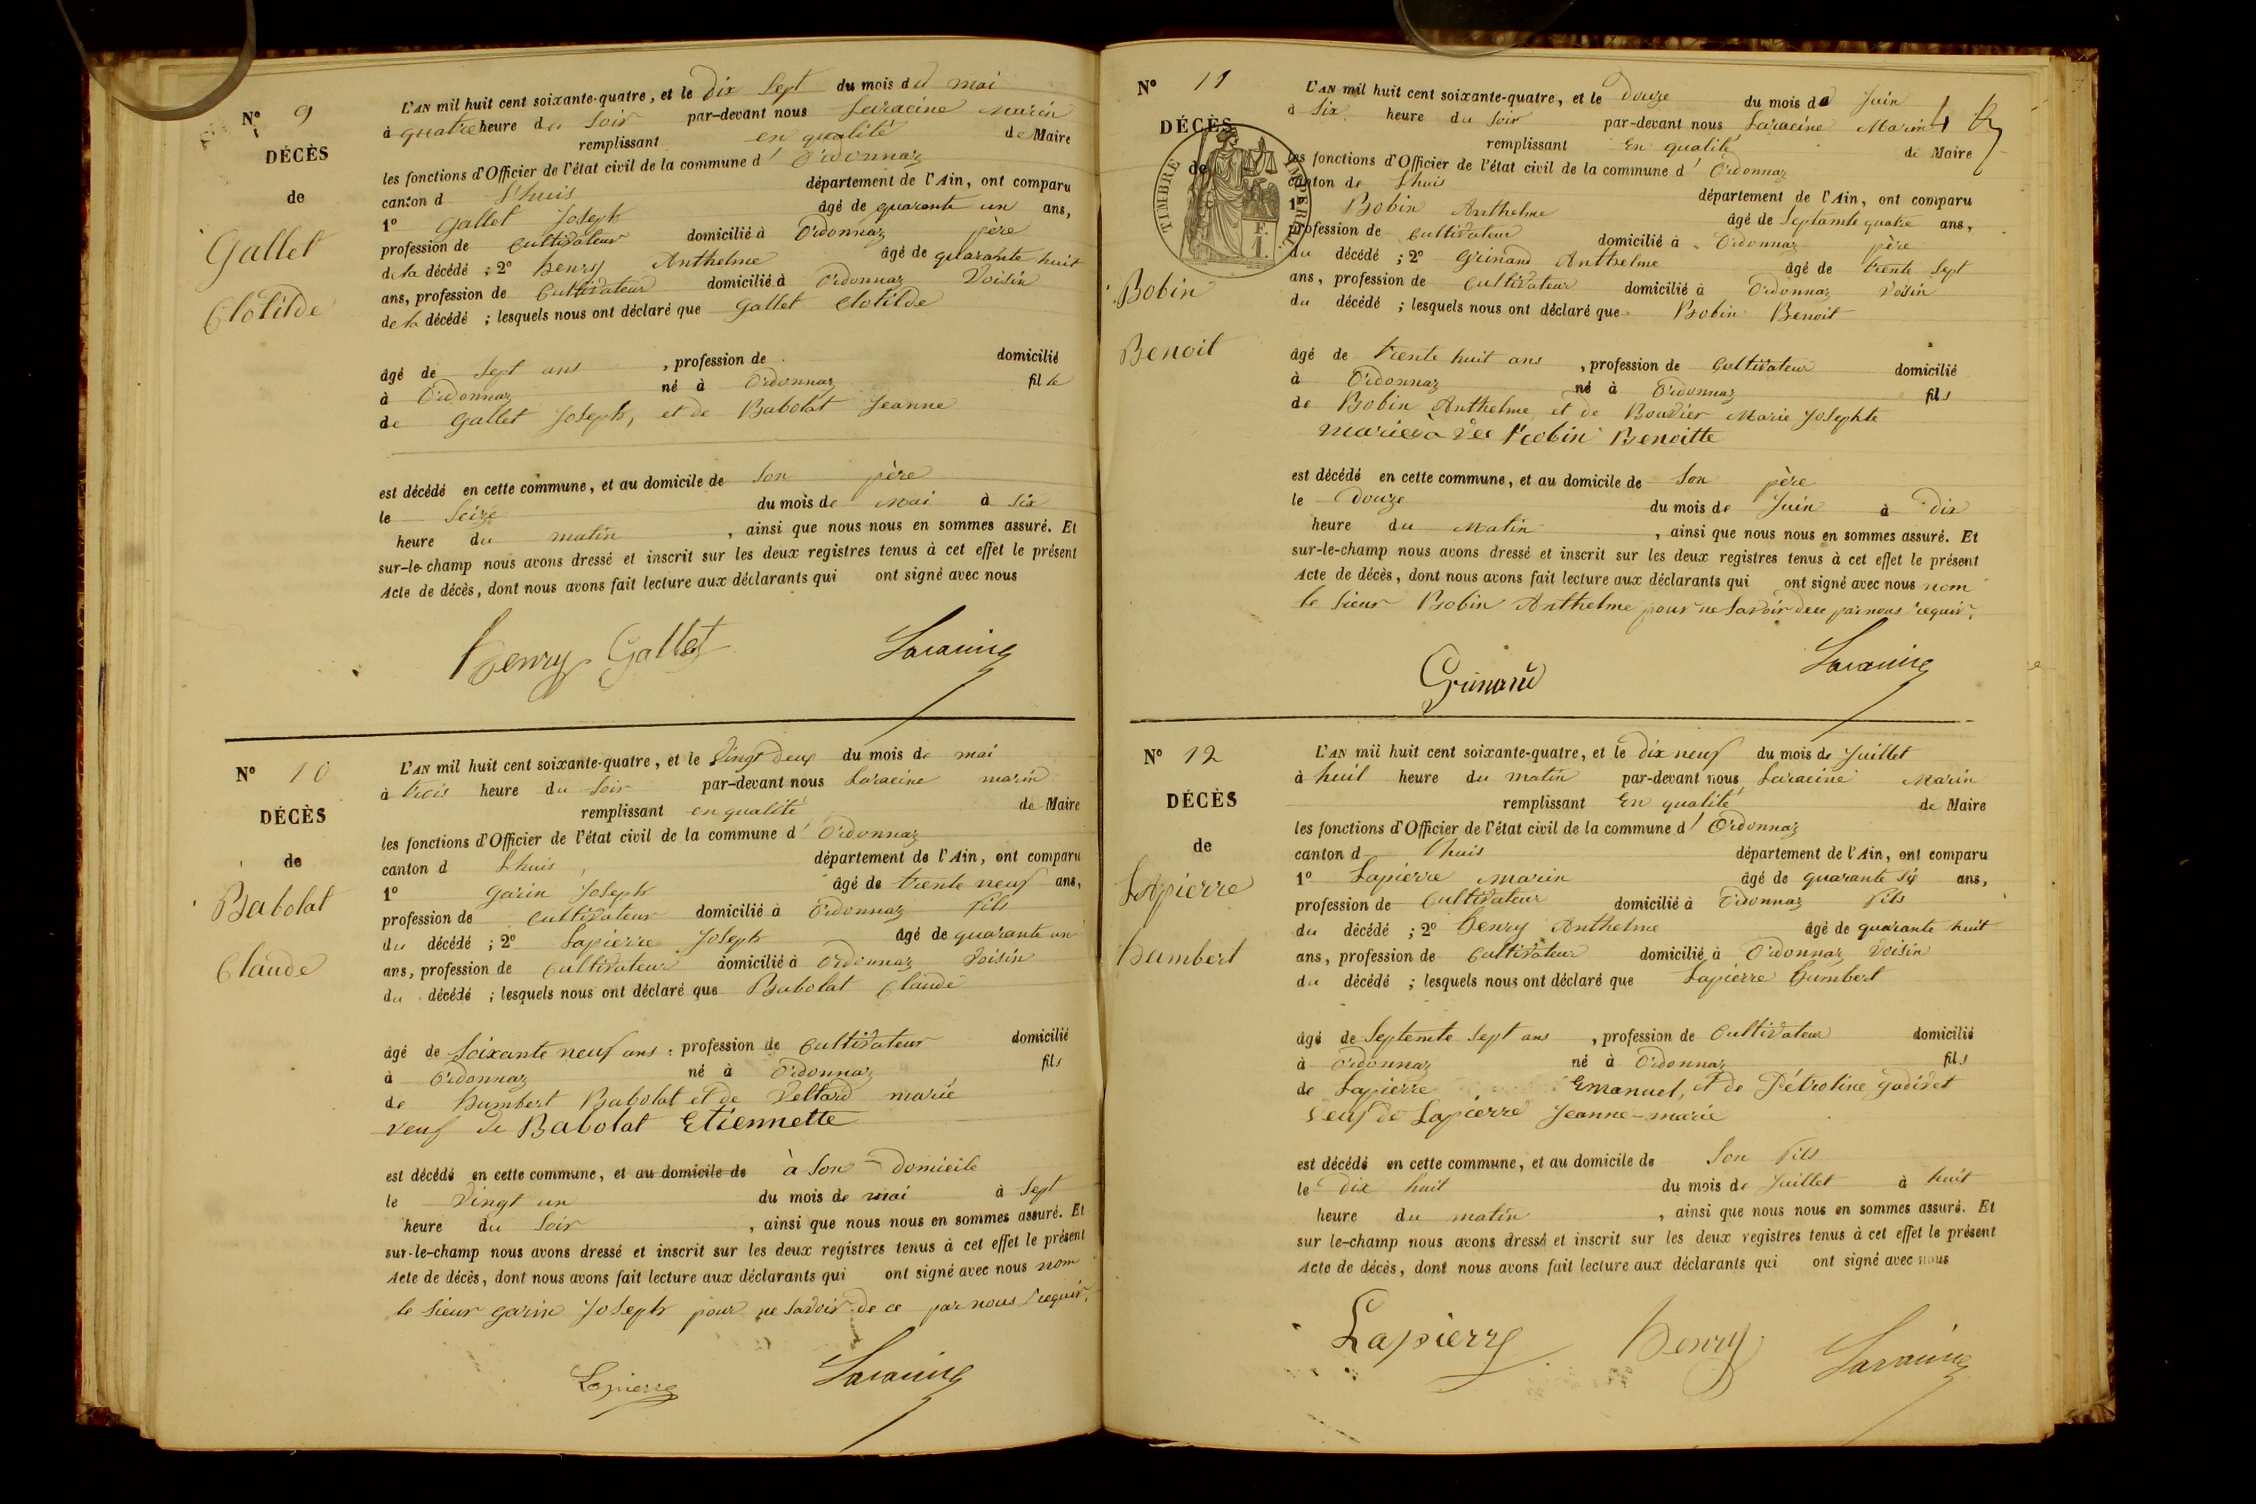 N° 9
DÉCÈS
de
Gallet
Clotilde
L'AN mil huit cent soixante-quatre, et le dix Sept du mois du mai
à quatre heure du Soir par-devant nous Saracine Marin
remplissant en qualité de Maire
les fonctions d'Officier de l'état civil de la commune d' Ordonnaz
canton d Lhuis département de l'Ain, ont comparu
1° Gallet Joseph âgé de quarante un ans,
profession de Cultivateur domicilié à Ordonnaz père
de la décédé ; 2° henry Anthelme âgé de quarante huit
ans, profession de Cultivateur domicilié à Ordonnaz Voisin
de la décédé ; lesquels nous ont déclaré que Gallet Clotilde
âgé de Sept ans , profession de domicilié
à Ordonnaz né à Ordonnaz fille
de Gallet Joseph, et de Babolat Jeanne
est décédé en cette commune, et au domicile de Son père
le Seize du mois de Mai à Six
heure du matin , ainsi que nous nous en sommes assuré. Et
sur-le-champ nous avons dressé et inscrit sur les deux registres tenus à cet effet le présent
Acte de décès, dont nous avons fait lecture aux déclarants qui ont signé avec nous
henry Gallet Saracine
N° 10
DÉCÈS
de
Babolat
Claude
L'AN mil huit cent soixante-quatre, et le Vingt deux du mois de mai
à trois heure du Soir par-devant nous Saracine marin
remplissant en qualité de Maire
les fonctions d'Officier de l'état civil de la commune d' Ordonnaz
canton d Lhuis département de l'Ain, ont comparu
1° Garin Joseph âgé de trente neuf ans,
profession de Cultivateur domicilié à Ordonnaz fils
du décédé ; 2° Lapierre Joseph âgé de quarante un
ans, profession de Cultivateur domicilié à Ordonnaz Voisin
du décédé ; lesquels nous ont déclaré que Babolat Claude
âgé de Soixante neuf ans , profession de Cultivateur domicilié
à Ordonnaz né à Ordonnaz fils
de humbert Babolat et de Veltard marie
veuf de Babolat Etiennette
est décédé en cette commune, et au domicile de à Son Domicile
le Vingt un du mois de mai à Sept
heure du Soir , ainsi que nous nous en sommes assuré. Et
sur-le-champ nous avons dressé et inscrit sur les deux registres tenus à cet effet le présent
Acte de décès, dont nous avons fait lecture aux déclarants qui ont signé avec nous nom
le Sieur Garin Joseph pour ne Savoir de ce par nous requir.
Lapierre Saracine
N° 11
DÉCÈS
de
TIMBRE IMPERIAL
F. 1.
Bobin
Benoit
L'AN mil huit cent soixante-quatre, et le Douze du mois de Juin
à Six heure du Soir par-devant nous Saracine Marin
remplissant En qualité de Maire
les fonctions d'Officier de l'état civil de la commune d' Ordonnaz
canton de Lhuis département de l'Ain, ont comparu
1° Bobin Anthelme âgé de Septante quatre ans,
profession de Cultivateur domicilié à Ordonnaz père
du décédé ; 2° Grinand Anthelme âgé de trente Sept
ans, profession de Cultivateur domicilié à Ordonnaz Voisin
du décédé ; lesquels nous ont déclaré que Bobin Benoit
âgé de trente huit ans , profession de Cultivateur domicilié
à Ordonnaz né à Ordonnaz fils
de Bobin Anthelme et de Bouvier Marie Josephte
Benoitte
est décédé en cette commune, et au domicile de Son père
le Douze du mois de Juin à Dix
heure du Matin , ainsi que nous nous en sommes assuré. Et
sur-le-champ nous avons dressé et inscrit sur les deux registres tenus à cet effet le présent
Acte de décès, dont nous avons fait lecture aux déclarants qui ont signé avec nous nom
le Sieur Bobin Anthelme pour ne Savoir de ce par nous requir.
Grinand Saracine
N° 12
DÉCÈS
de
Lapierre
humbert
L'AN mil huit cent soixante-quatre, et le dix neuf du mois de Juillet
à huit heure du matin par-devant nous Saracine Marin
remplissant En qualité de Maire
les fonctions d'Officier de l'état civil de la commune d' Ordonnaz
canton d Lhuis département de l'Ain, ont comparu
1° Lapierre Marin âgé de quarante Six ans,
profession de Cultivateur domicilié à Ordonnaz fils
du décédé ; 2° henry Anthelme âgé de quarante huit
ans, profession de Cultivateur domicilié à Ordonnaz Voisin
du décédé ; lesquels nous ont déclaré que Lapierre humbert
âgé de Septente Sept ans , profession de Cultivateur domicilié
à Ordonnaz né à Ordonnaz fils
de Lapierre Emanuel, et de Pétroline Godivet
veuf de Lapierre Jeanne-marie
est décédé en cette commune, et au domicile de Son fils
le Dix huit du mois de Juillet à huit
heure du matin , ainsi que nous nous en sommes assuré. Et
sur le-champ nous avons dressé et inscrit sur les deux registres tenus à cet effet le présent
Acte de décès, dont nous avons fait lecture aux déclarants qui ont signé avec nous
Lapierre henry Saracine